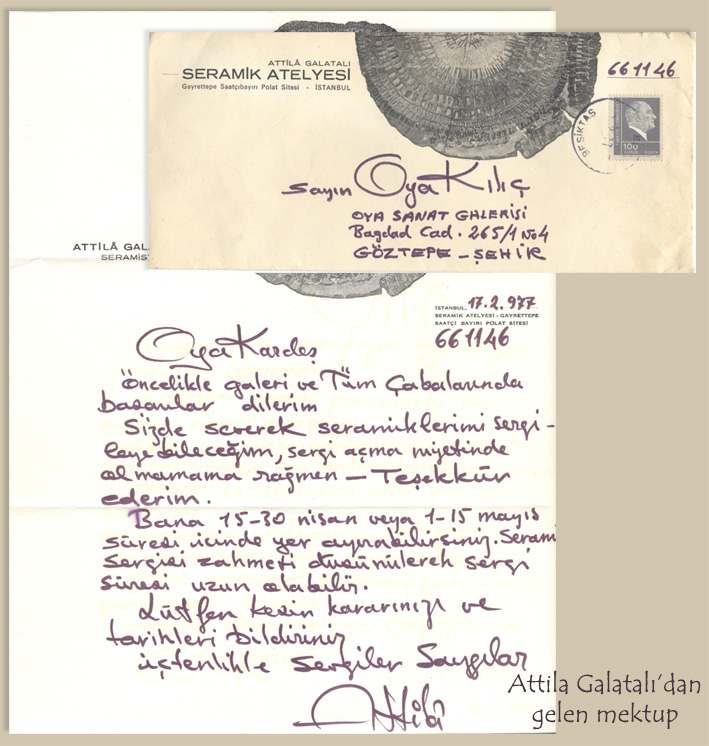 ATTİLÂ GALATALI
SERAMİK ATELYESİ
Gayrettepe Saatçıbayırı Polat Sitesi - İSTANBUL
661146
BEŞİKTAŞ
100
Sayın Oya Kılıç
OYA SANAT GALERİSİ
Bagdad Cad. 265/1 No 4
GÖZTEPE – ŞEHİR
ATTİLÂ GALA
SERAMİST
İSTANBUL, 17.2.977
SERAMİK ATELYESİ - GAYRETTEPE
SAATÇİ BAYIRI POLAT SİTESİ
661146
Oya Kardeş
Öncelikle galeri ve Tüm Çabalarında
başarılar dilerim
Sizde severek seramiklerimi sergi-
leyebileceğim, sergi açma niyetinde
olmamama rağmen – Teşekkür
ederim.
Bana 15-30 nisan veya 1-15 mayıs
süresi içinde yer ayırabilirsiniz. Serami
Sergisi zahmeti düşünülerek sergi
süresi uzun olabilir.
Lütfen kesin kararınızı ve
tarihleri bildiriniz
içtenlikle Sevgiler Saygılar
Attilâ
Attila Galatalı'dan
gelen mektup